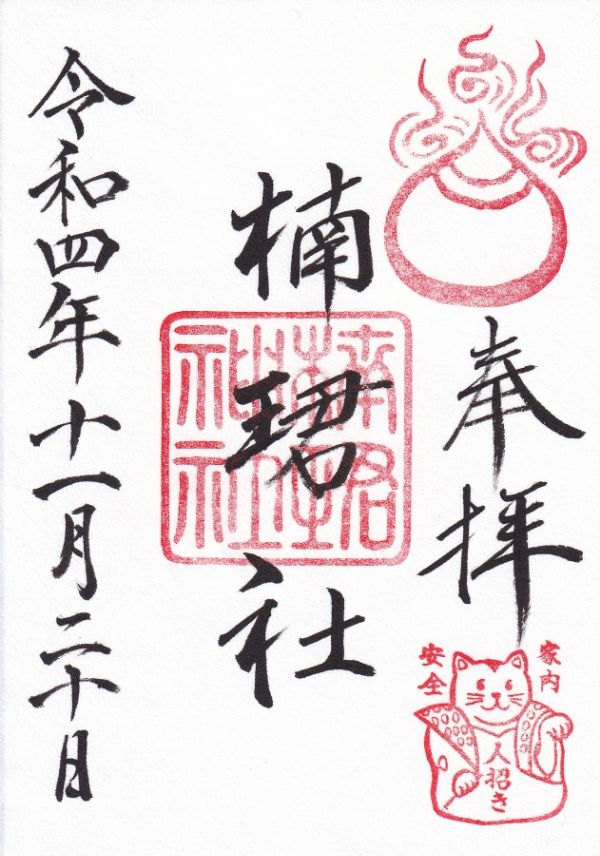 奉拝
家内
安全
人招き
楠珺社
令和四年十一月二十日